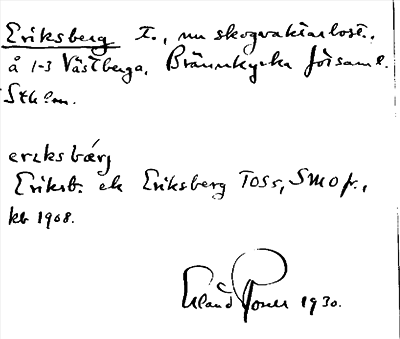 Eriksberg T., nu skogvaktarbost.
å 1-3 Västberga, Brännkyrka församl.
Sthlm.
erɩksbærj
Eriksb. ek Eriksberg Toss, SMOfr.,
kb 1908.
Erland Rosell 1930.